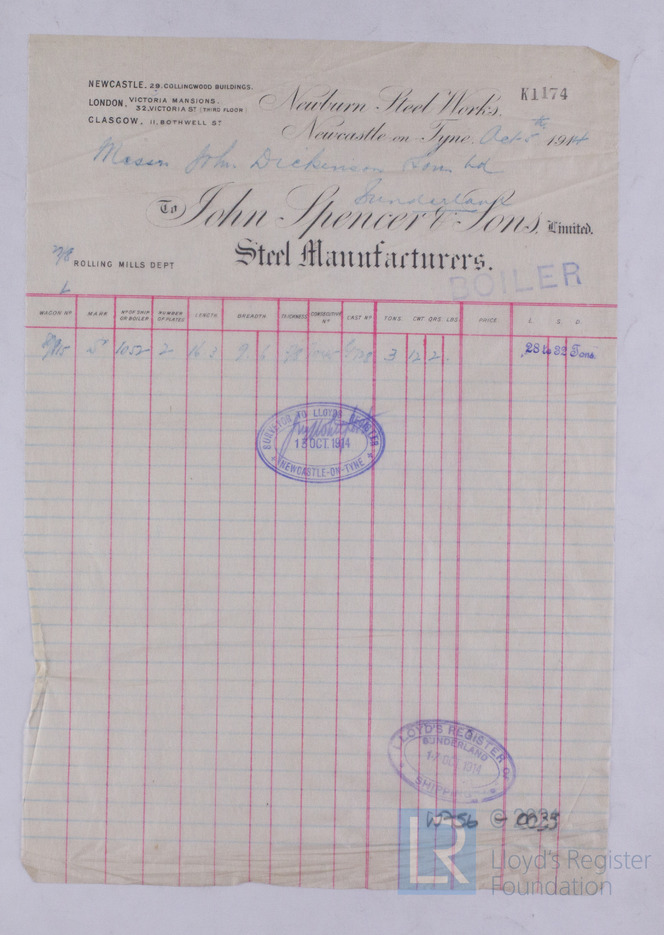 NEWCASTLE. 29, COLLINGWOOD BUILDINGS.
LONDON, VICTORIA MANSIONS. 32, VICTORIA ST (THIRD FLOOR)
GLASGOW, 11, BOTHWELL ST
K1174
Newburn Steel Works,
Newcastle-on-Tyne, Oct 5th 1914
Messrs John Dickinson Sons Ld
Sunderland
To John Spencer & Sons, Limited.
Steel Manufacturers.
ROLLING MILLS DEPT
BOILER
WAGON No MARK No OF SHIP OR BOILER NUMBER OF PLATES LENGTH BREADTH THICKNESS CONSECUTIVE No CAST No TONS. CWT QRS. LBS. PRICE. L. S. D.
1052 2 16 3 9 6 3 12 2
28 to 32 Tons
SURVEYOR TO LLOYDS REGISTER
13 OCT. 1914
NEWCASTLE-ON-TYNE
LLOYD'S REGISTER OF
SUNDERLAND
17 OCT 1914
SHIPPING
W256 - 0035
LR
Lloyd's Register
Foundation